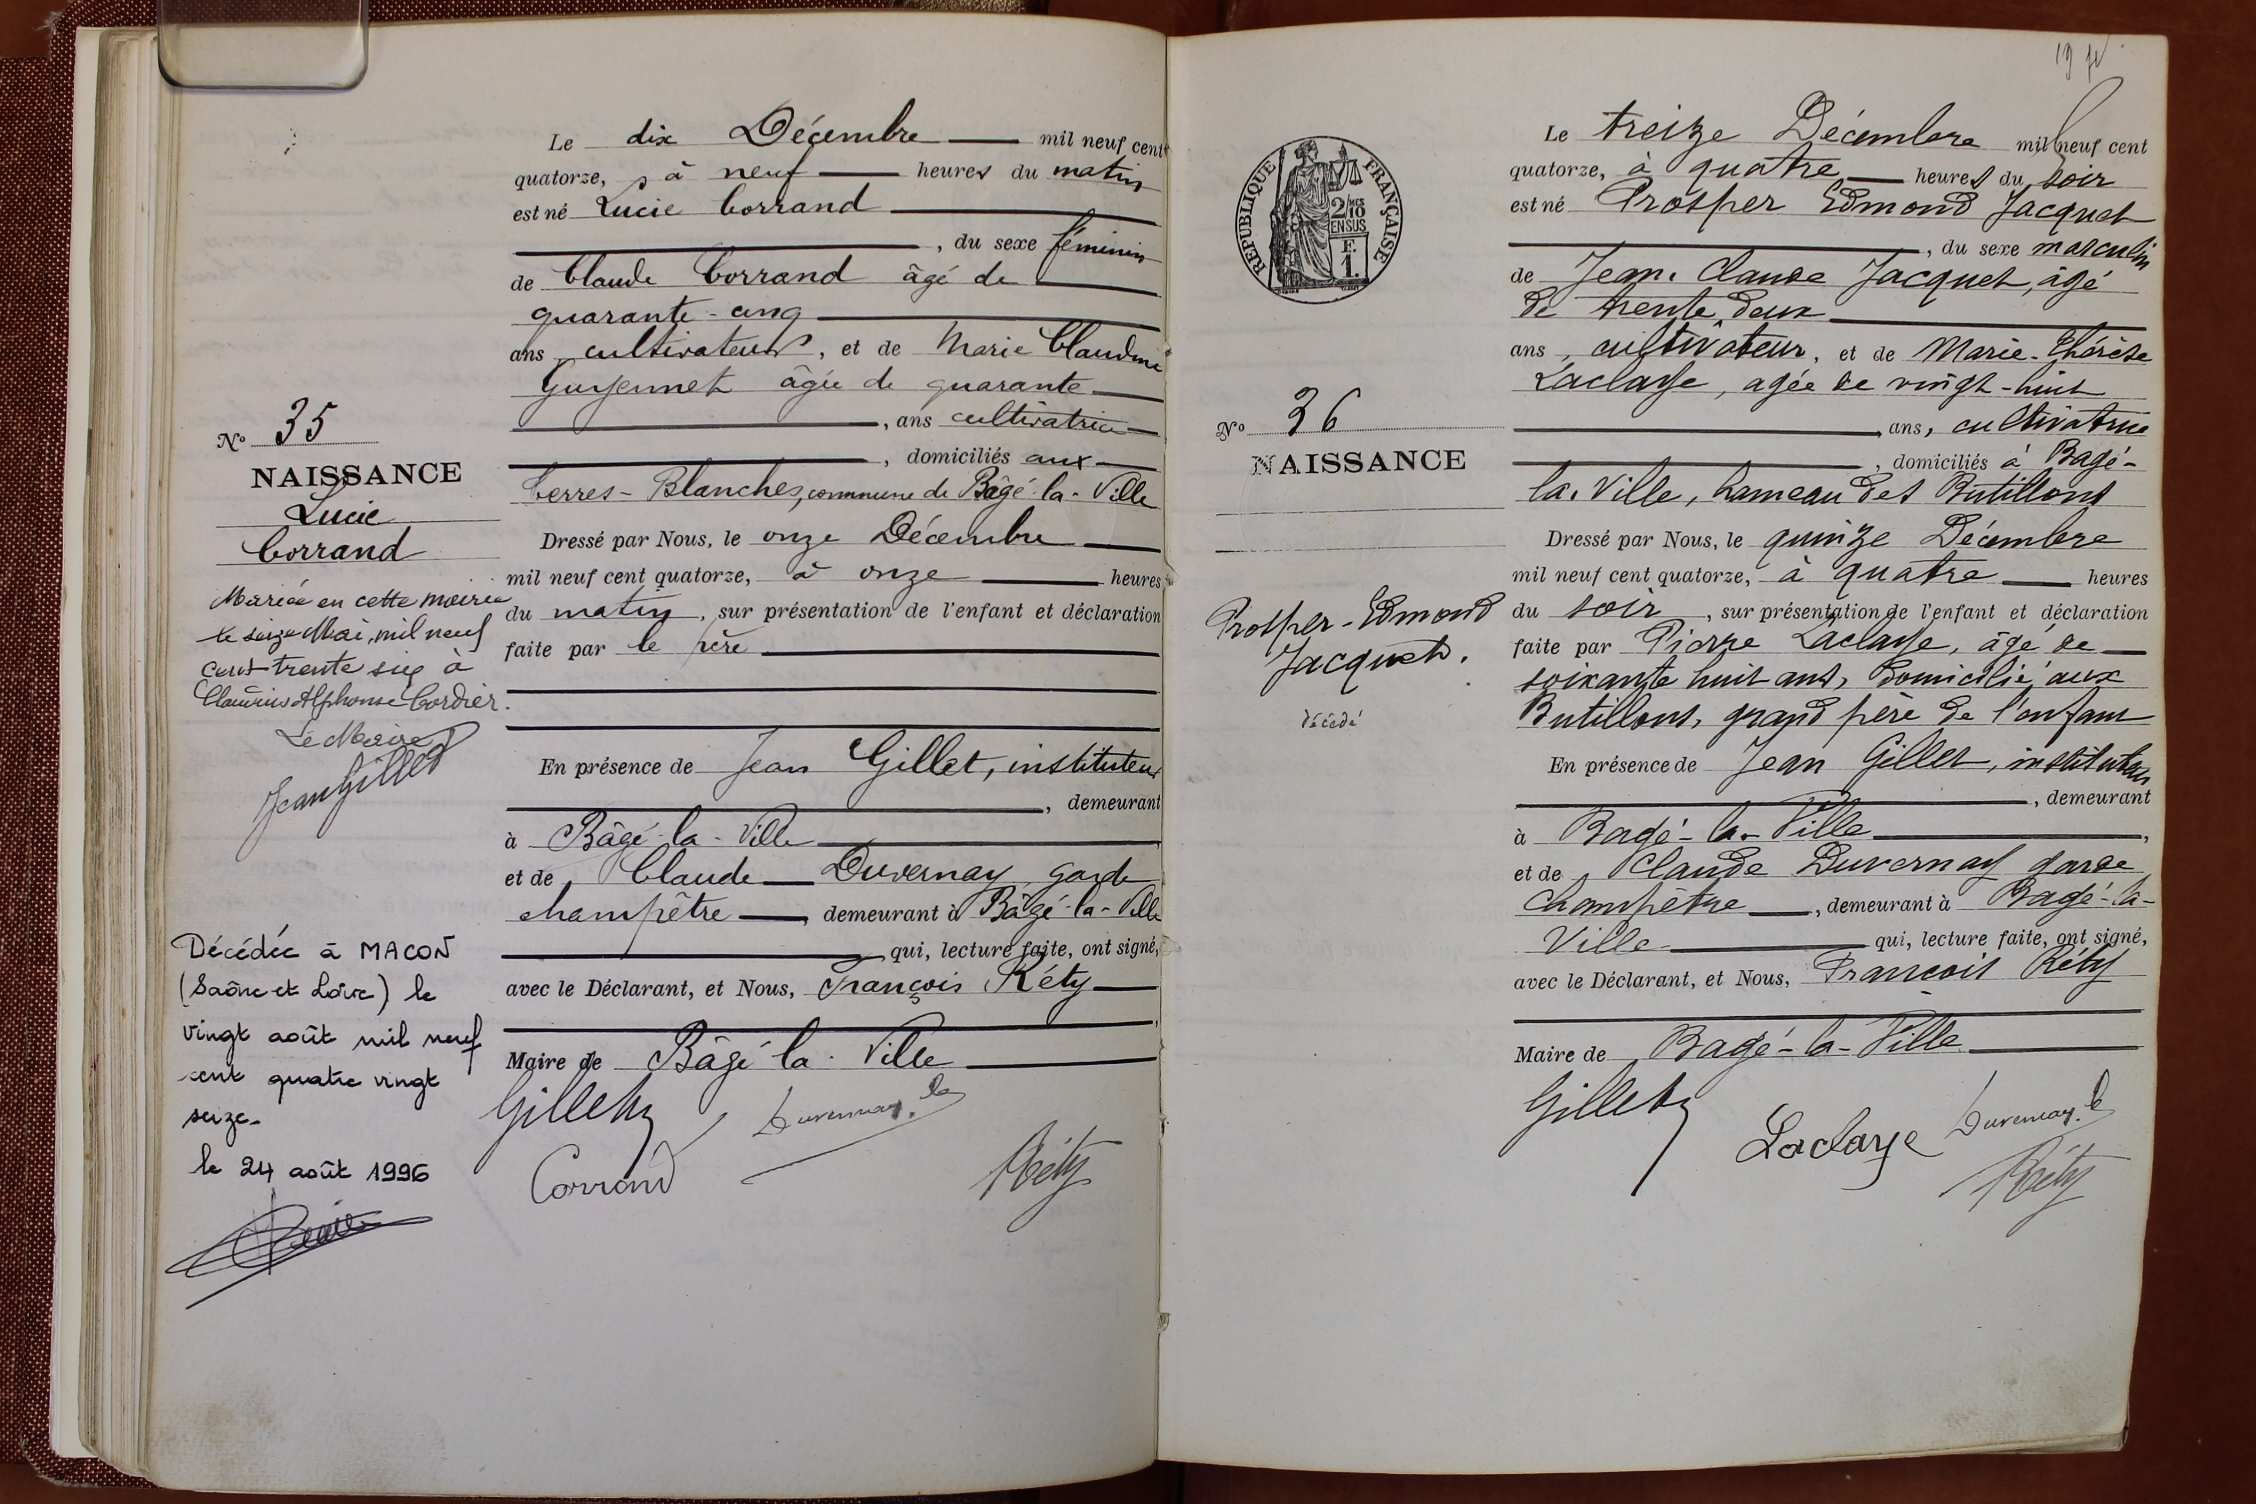 Le dix Décembre mil neuf cent
quatorze, à neuf heures du matin
est né Lucie Corrand
, du sexe féminin
de Claude Corrand âgé de
quarante-cinq
ans cultivateur, et de Marie Claudine
Guyennet âgée de quarante
, ans cultivatrice
, domiciliés aux
Terres-Blanches, commune de Bâgé-la-Ville
Dressé par Nous, le onze Décembre
mil neuf cent quatorze, à onze heures
du matin, sur présentation de l'enfant et déclaration
faite par le père
En présence de Jean Gillet, instituteur
, demeurant
à Bâgé-la-Ville
et de Claude Duvernay garde
champêtre, demeurant à Bâgé-la-Ville
qui, lecture faite, ont signé,
avec le Déclarant, et Nous, François Réty
Maire de Bâgé-la-Ville
Gillet Duvernay. Cl
Corrand Réty
No 35
NAISSANCE
Lucie
Corrand
Mariée en cette mairie
le seize Mai, mil neuf
cent trente six à
Claudius Alphonse Cordier.
Le Maire
Jean Gillet
Décédée à MACON
(Saône et Loire) le
vingt août mil neuf
cent quatre vingt
seize.
le 24 août 1996
19
RÉPUBLIQUE FRANÇAISE
2/10
EN SUS
F.
1.
Le treize Décembre mil neuf cent
quatorze, à quatre heures du soir
est né Prosper Edmond Jacquet
, du sexe masculin
de Jean-Claude Jacquet, âgé
de trente deux
ans, cultivateur, et de Marie-Thérèse
Laclaye, agée de vingt-huit
ans, cultivatrice
, domiciliés à Bagé-
la-Ville, hameau des Butillons
Dressé par Nous, le quinze Décembre
mil neuf cent quatorze, à quatre heures
du soir, sur présentation de l'enfant et déclaration
faite par Pierre Laclaye, âgé de
soixante huit ans, domicilié aux
Butillons, grand père de l'enfant
En présence de Jean Gillet, instituteur
, demeurant
à Bagé-la-Ville,
et de Claude Duvernay garde
Champêtre, demeurant à Bagé-la-
Ville qui, lecture faite, ont signé,
avec le Déclarant, et Nous, François Réty
Maire de Bagé-la-Ville
Gillet Laclaye Duvernay. Cl
Réty
No 36
NAISSANCE
Prosper-Edmond
Jacquet.
décédé